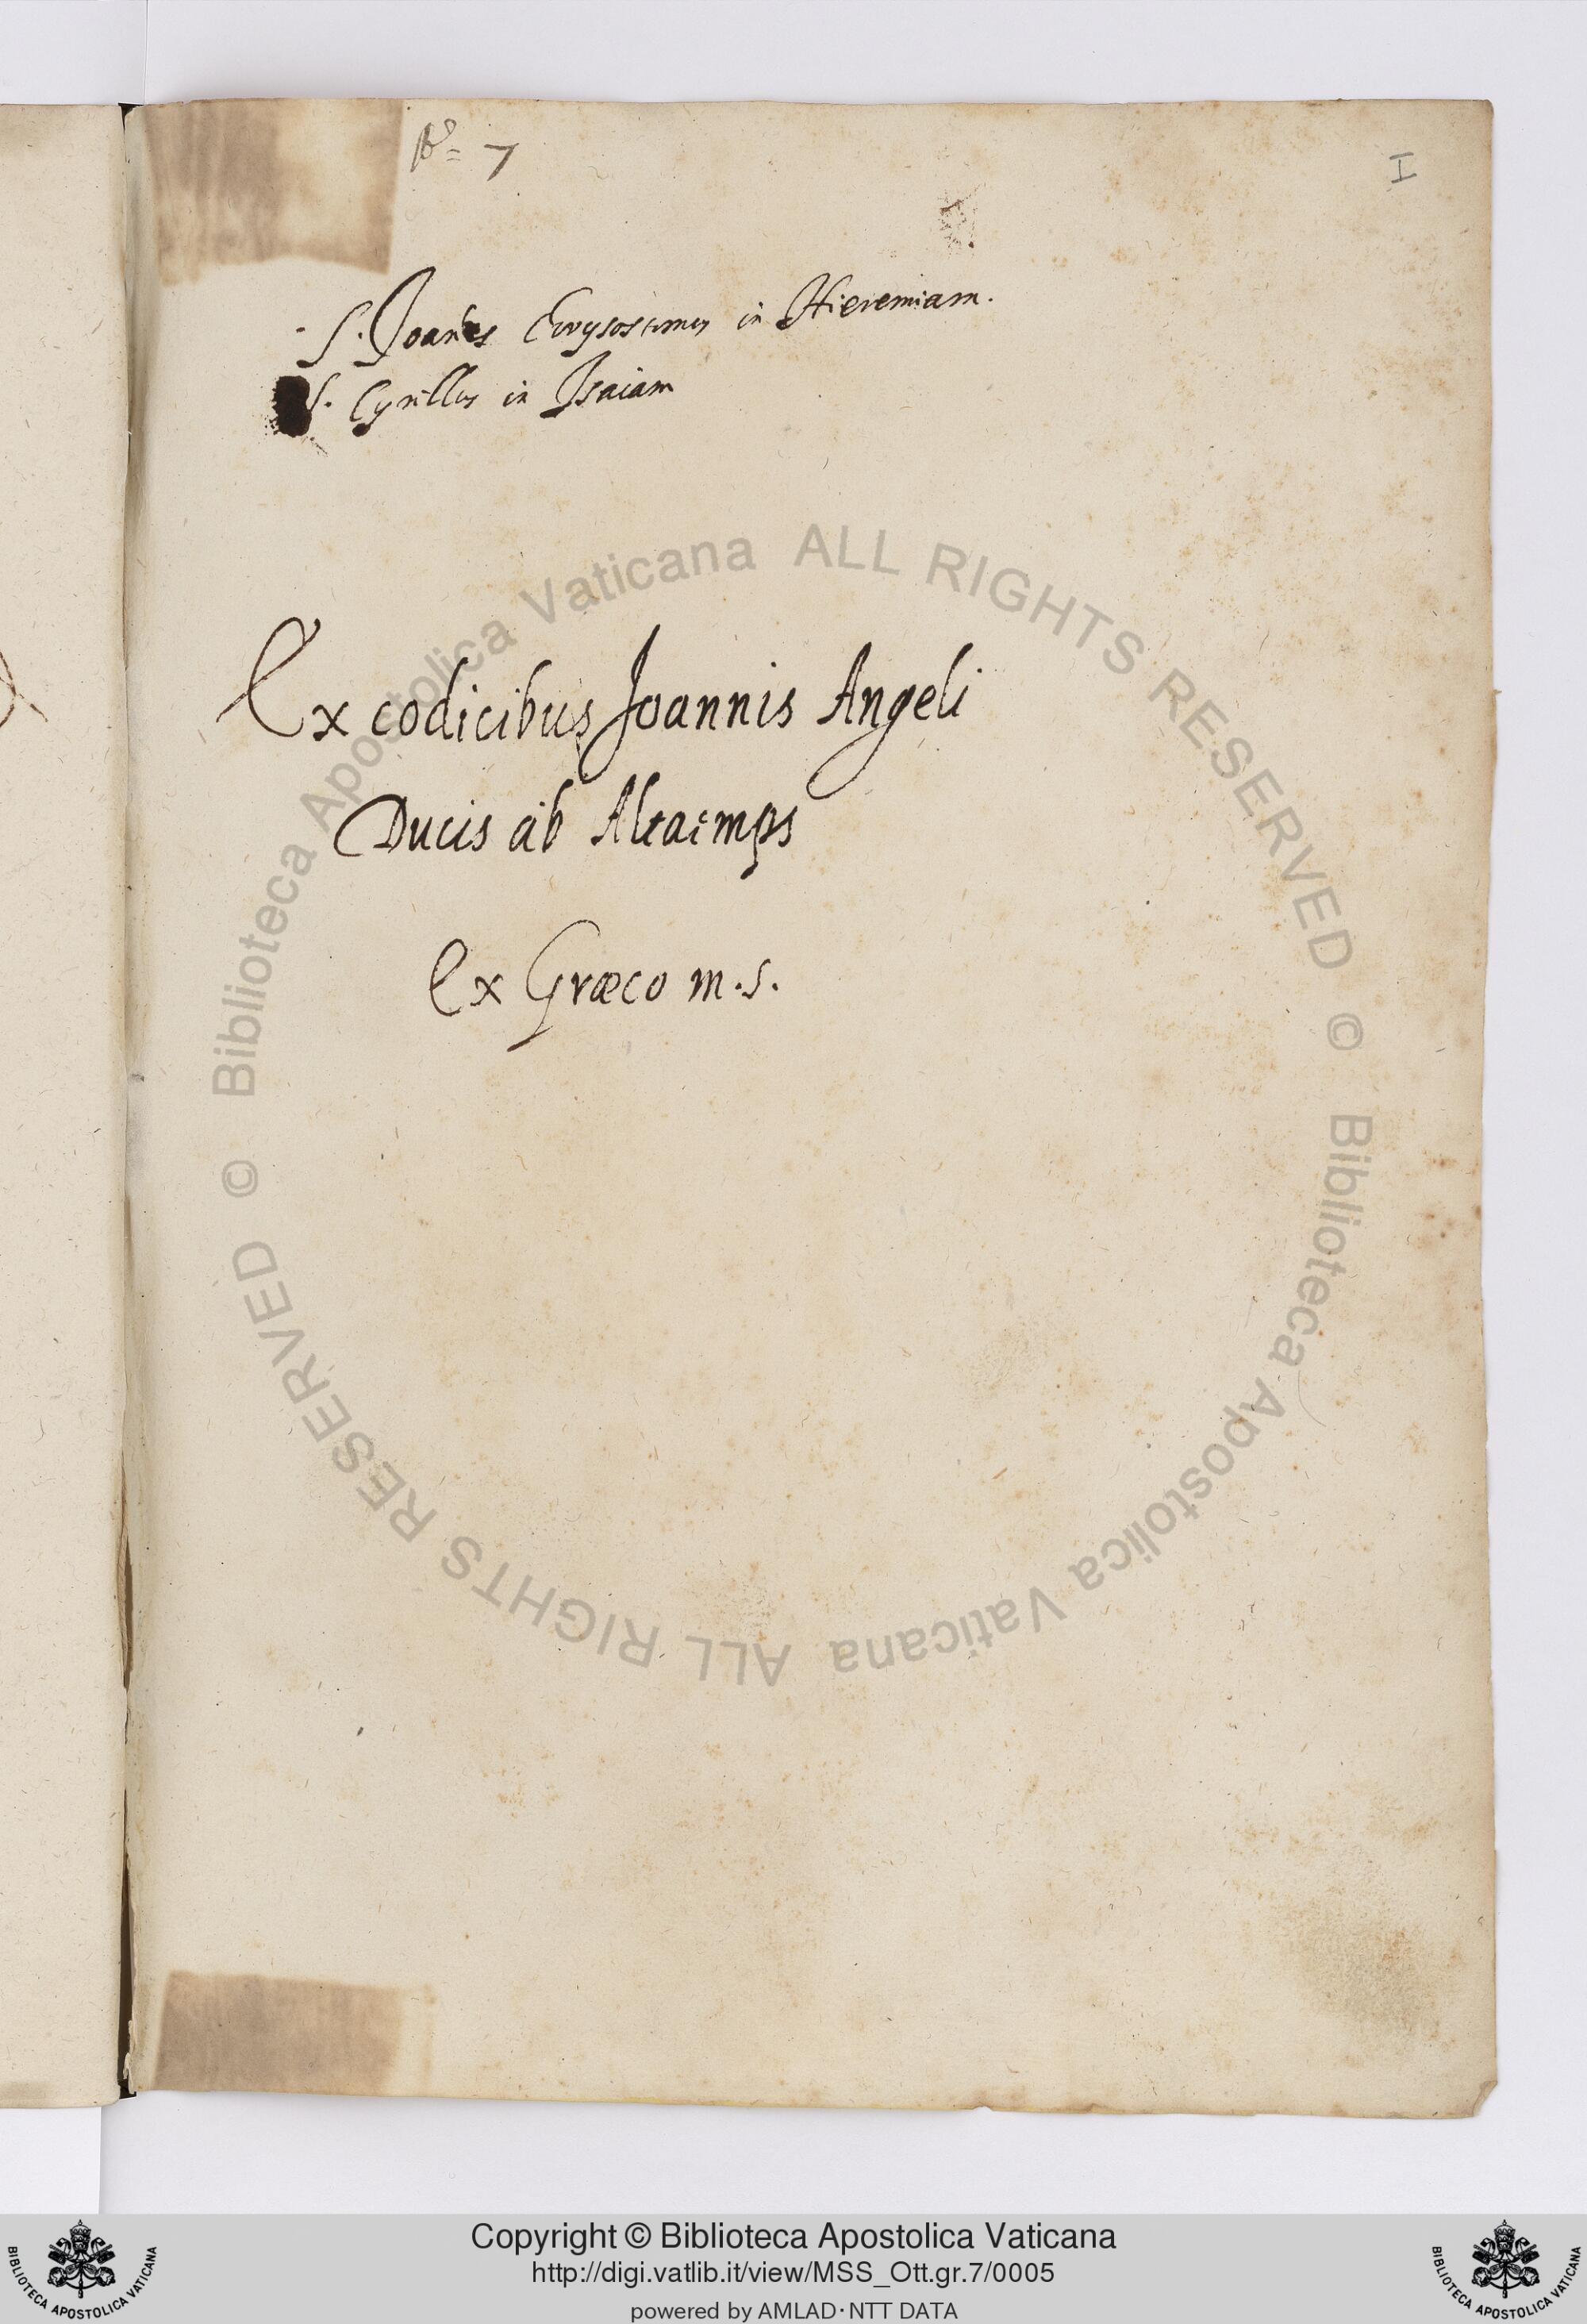 Nº= 7
I
S. Joannes Crrysostomus in Hieremiam.
S. Cyrillus in Isaiam
Ex codicibus Joannis Angeli
Ducis ab Altaemps
Ex Græco m.s.
© Biblioteca Apostolica Vaticana ALL RIGHTS RESERVED
© Biblioteca Apostolica Vaticana ALL RIGHTS RESERVED
Copyright © Biblioteca Apostolica Vaticana
http://digi.vatlib.it/view/MSS_Ott.gr.7/0005
powered by AMLAD·NTT DATA
BIBLIOTECA APOSTOLICA VATICANA
BIBLIOTECA APOSTOLICA VATICANA